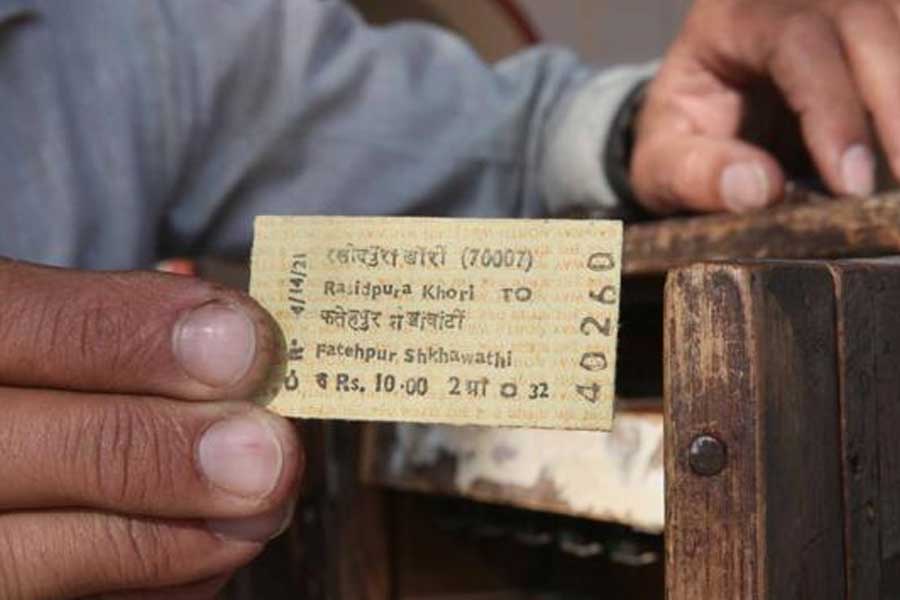 रसीदपुरा खोरी (70007)
Rasidpura Khori TO
फतेहपुर शेखावाटी
Fatehpur Shkhawathi
₹ Rs. 10.00 2 प्रौ 0 32
4/14/21
40260